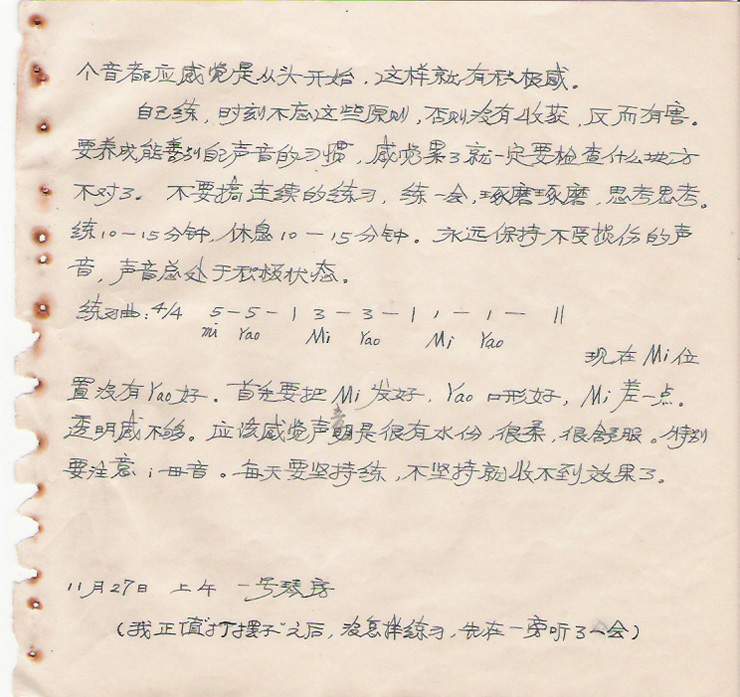 个音都应感觉是从头开始，这样就有积极感。
自己练，时刻不忘这些原则，否则没有收获，反而有害。
要养成能善别自己声音的习惯，感觉累了就一定要检查什么地方
不对了。不要搞连续的练习，练一会，琢磨琢磨，思考思考。
练10－15分钟，休息10－15分钟。永远保持不受损伤的声
音，声音总处于积极状态。
练习曲：4/4 5－5－| 3－3－| 1－1－ ||
mi Yao Mi Yao Mi Yao
现在Mi位
置没有Yao好。首先要把Mi发好，Yao口形好，Mi差一点。
透明感不够。应该感觉声音是很有水份，很柔，很舒服。特别
要注意i母音。每天要坚持练，不坚持就收不到效果了。
11月27日 上午 一号琴房
（我正值“打摆子”之后，没怎样练习，先在一旁听了一会）